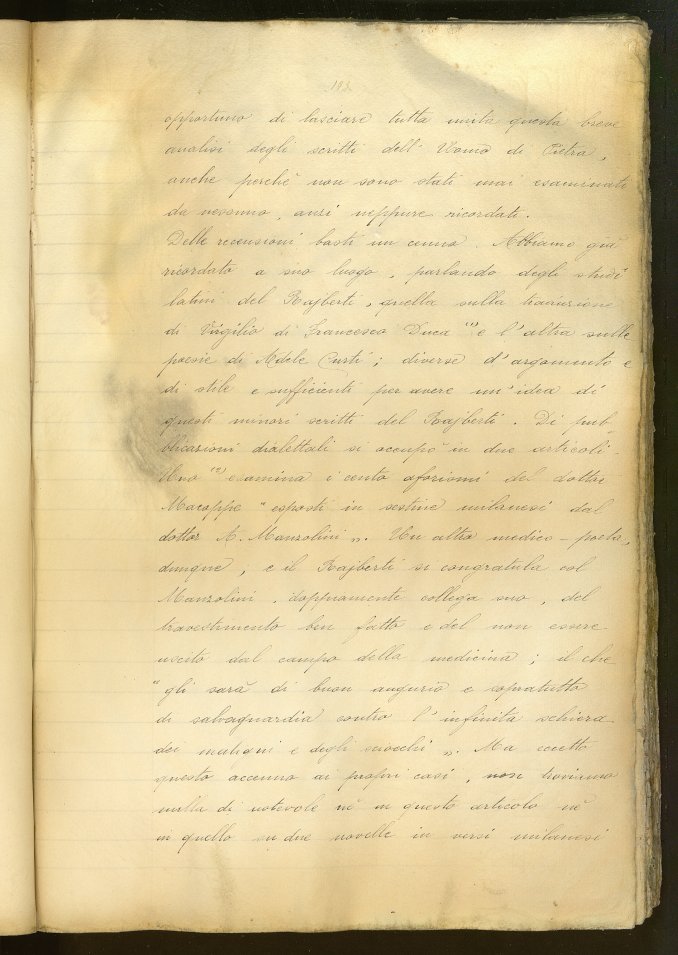 193.
opportuno di lasciare tutta unita questa breve
analisi degli scritti dell' Uomo di Pietra,
anche perchè non sono stati mai esaminati
da nessuno, anzi neppure ricordati.
Delle recensioni basti un cenno. Abbiamo già
ricordato a suo luogo, parlando degli studi
latini del Rajberti, quella sulla traduzione
di Virgilio di Francesco Duca (1) e l'altra sulle
poesie di Adele Curti; diverse d'argomento e
di stile e sufficienti per avere un'idea di
questi minori scritti del Rajberti. Di pub-
blicazioni dialettali si occupò in due articoli.
Uno (2) esamina i cento aforismi del dottor
Macoppe "esposti in sestine milanesi dal
dottor A. Manzolini". Un altro medico-poeta,
dunque; e il Rajberti si congratula col
Manzolini, doppiamente collega suo, del
travestimento ben fatto e del non essere
uscito dal campo della medicina; il che
"gli sarà di buon augurio e sopratutto
di salvaguardia contro l'infinita schiera
dei maligni e degli sciocchi". Ma eccetto
questo accenno ai propri casi, non troviamo
nulla di notevole nè in questo articolo nè
in quello su due novelle in versi milanesi